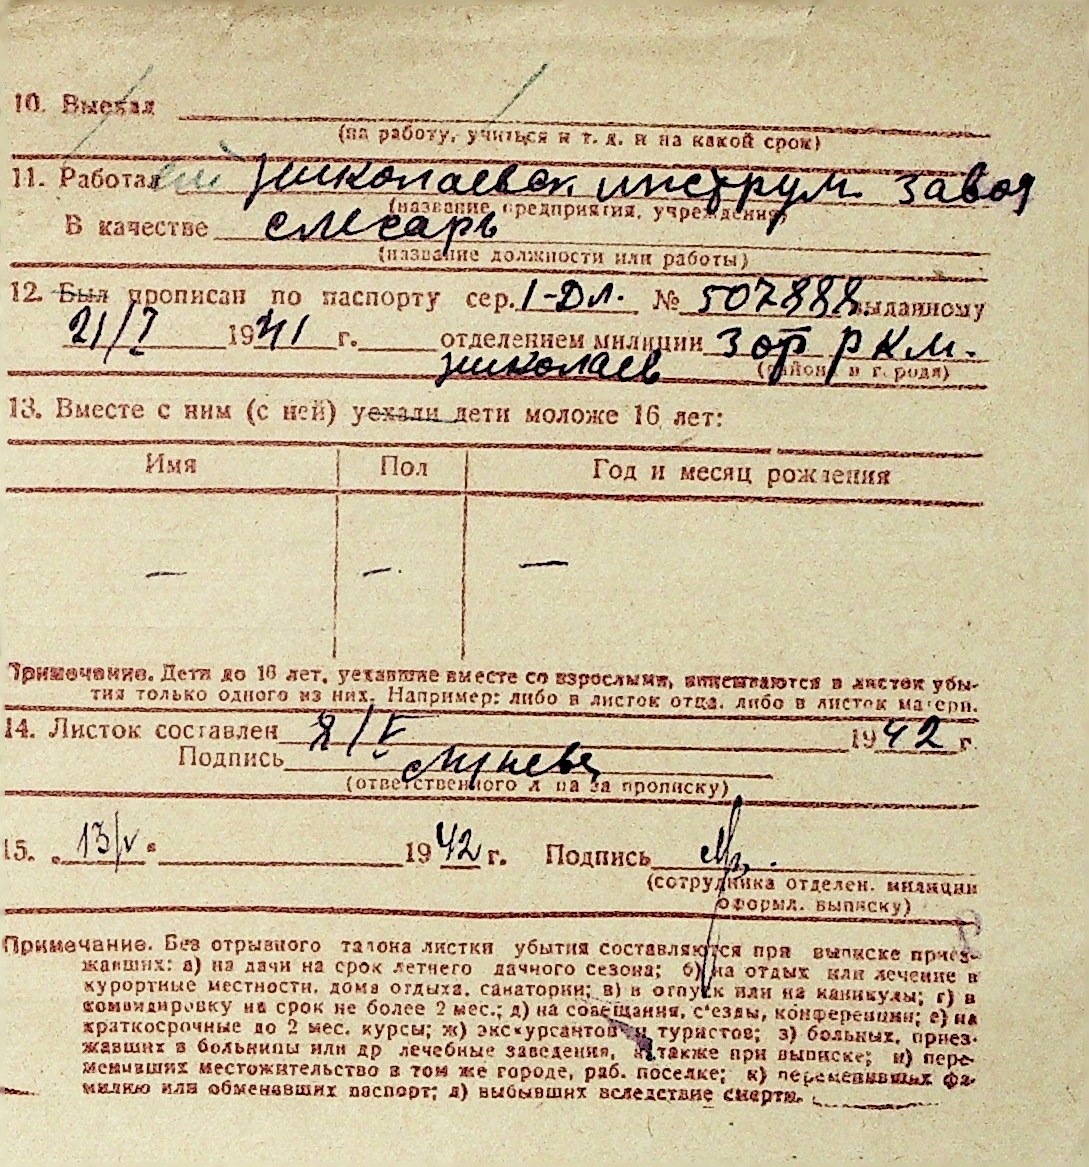 10. Выехал
(на работу, учиться и т. д. и на какой срок)
11. Работал Николаевск. инструм. завод
(название предприятия, учреждения)
В качестве слесарь
(название должности или работы)
12. Был прописан по паспорту сер. I-Дл. № 507888. выданному
21/I 1941 г. отделением милиции 3 от Р К М.
Николаев
(района и города)
13. Вместе с ним (с ней) уехали дети моложе 16 лет:
Имя Пол Год и месяц рождения
— — —
Примечание. Дети до 16 лет, уехавшие вместе со взрослыми, вписываются в листок убы-
тия только одного из них. Например: либо в листок отца, либо в листок матери.
14. Листок составлен /V 1942 г.
Подпись
(ответственного лица за прописку)
15. „13/V" 1942 г. Подпись
(сотрудника отделен. милиции
оформл. выписку)
Примечание. Без отрывного талона листки убытия составляются при выписке приез-
жавших: а) на дачи на срок летнего дачного сезона; б) на отдых или лечение в
курортные местности, дома отдыха, санатории; в) в отпуск или на каникулы; г) в
командировку на срок не более 2 мес.; д) на совещания, с'езды, конференции; е) на
краткосрочные до 2 мес. курсы; ж) экскурсантов и туристов; з) больных, приез-
жавших в больницы или др лечебные заведения, а также при выписке; и) пере-
менивших местожительство в том же городе, раб. поселке; к) переменивших фа-
милию или обменявших паспорт; л) выбывших вследствие смерти.